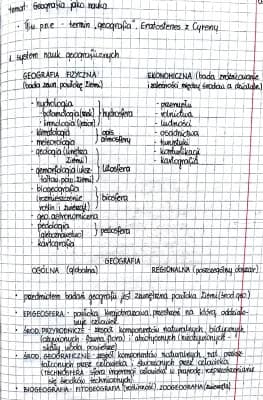 temat: Geografia jako nauka
III w. p.n.e - termin "geografia", Eratostenes z Cyreny
1. System nauk geograficznych
GEOGRAFIA FIZYCZNA
(bada zewn. powłokę Ziemi)
- hydrologia
- potamologia (rzek)
- limnologia (jezior)
} hydrosfera
- klimatologia
- meteorologia
} opis atmosfery
- geologia (wnętrza Ziemi)
- geomorfologia (ukształtow. pow. Ziemi)
} litosfera
- biogeografia
(rozmieszczenie
roślin i zwierząt)
} biosfera
- geo. astronomiczna
- pedologia
(gleboznawstwo)
} pedosfera
- kartografia
EKONOMICZNA (bada zróżnicowanie
i zależności między środow. a działaln.)
- przemysłu
- rolnictwa
- ludności
- osadnictwa
- turystyki
- komunikacji
- kartografia
GEOGRAFIA
OGÓLNA (globalna)
REGIONALNA (poszczególny obszar)
• przedmiotem badań geografii jest zewnętrzna powłoka Ziemi (środ. geo.)
• EPIGEOSFERA - powłoka krajobrazowa, przestrzeń na którą oddziałuje
człowiek
• ŚROD. PRZYRODNICZE - zespół komponentów naturalnych, biotycznych
(ożywionych - fauna, flora) i abiotycznych (nieożywionych -
skały, woda, powietrze)
• ŚROD. GEOGRAFICZNE - zespół komponentów naturalnych,
przez człowieka i stworzonych przez człowieka
(TECHNOSFERA - sfera ingerencji człowieka w przyrodę,
się środków technicznych)
• BIOGEOGRAFIA - FITOGEOGRAFIA (roślinność), ZOOGEOGRAFIA (zwierzęta)